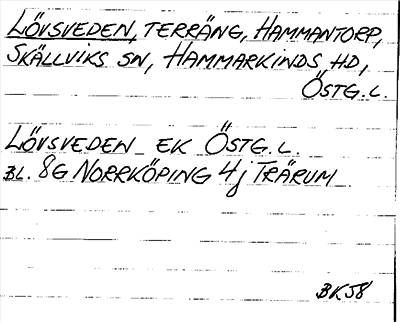 LÖVSVEDEN, TERRÄNG, HAMMANTORP,
SKÄLLVIKS SN, HAMMARKINDS HD,
ÖSTG. L.
LÖVSVEDEN EK ÖSTG. L.
BL. 8G NORRKÖPING 4j TRÄRUM
BK58